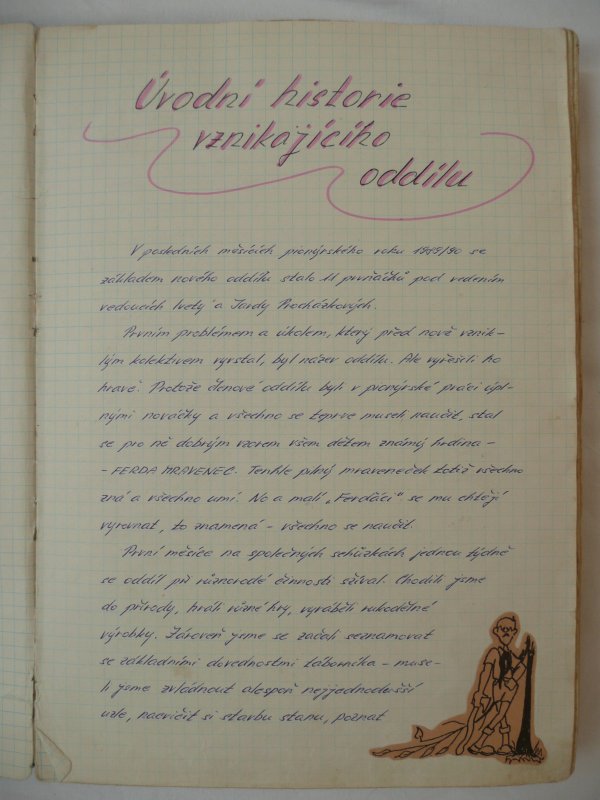 Úvodní historie
vznikajícího
oddílu
V posledních měsících pionýrského roku 1989/90 se
základem nového oddílu stalo 11 prvňáčků pod vedením
vedoucích Ivety a Jardy Procházkových.
Prvním problémem a úkolem, který před nově vznik-
lým kolektivem vyvstal, byl název oddílu. Ale vyřešili ho
hravě. Protože členové oddílu byli v pionýrské práci úpl-
nými nováčky a všechno se teprve museli naučit, stal
se pro ně dobrým vzorem všem dětem známý hrdina -
- FERDA MRAVENEC. Tenhle pilný mraveneček totiž všechno
zná a všechno umí. No a malí „Ferďáci" se mu chtějí
vyrovnat, to znamená - všechno se naučit.
První měsíce na společných schůzkách jednou týdně
se oddíl při různorodé činnosti sžíval. Chodili jsme
do přírody, hráli různé hry, vyráběli rukodělné
výrobky. Zároveň jsme se začali seznamovat
se základními dovednostmi táborníka - muse-
li jsme zvládnout alespoň nejjednodušší
uzle, nacvičit si stavbu stanu, poznat